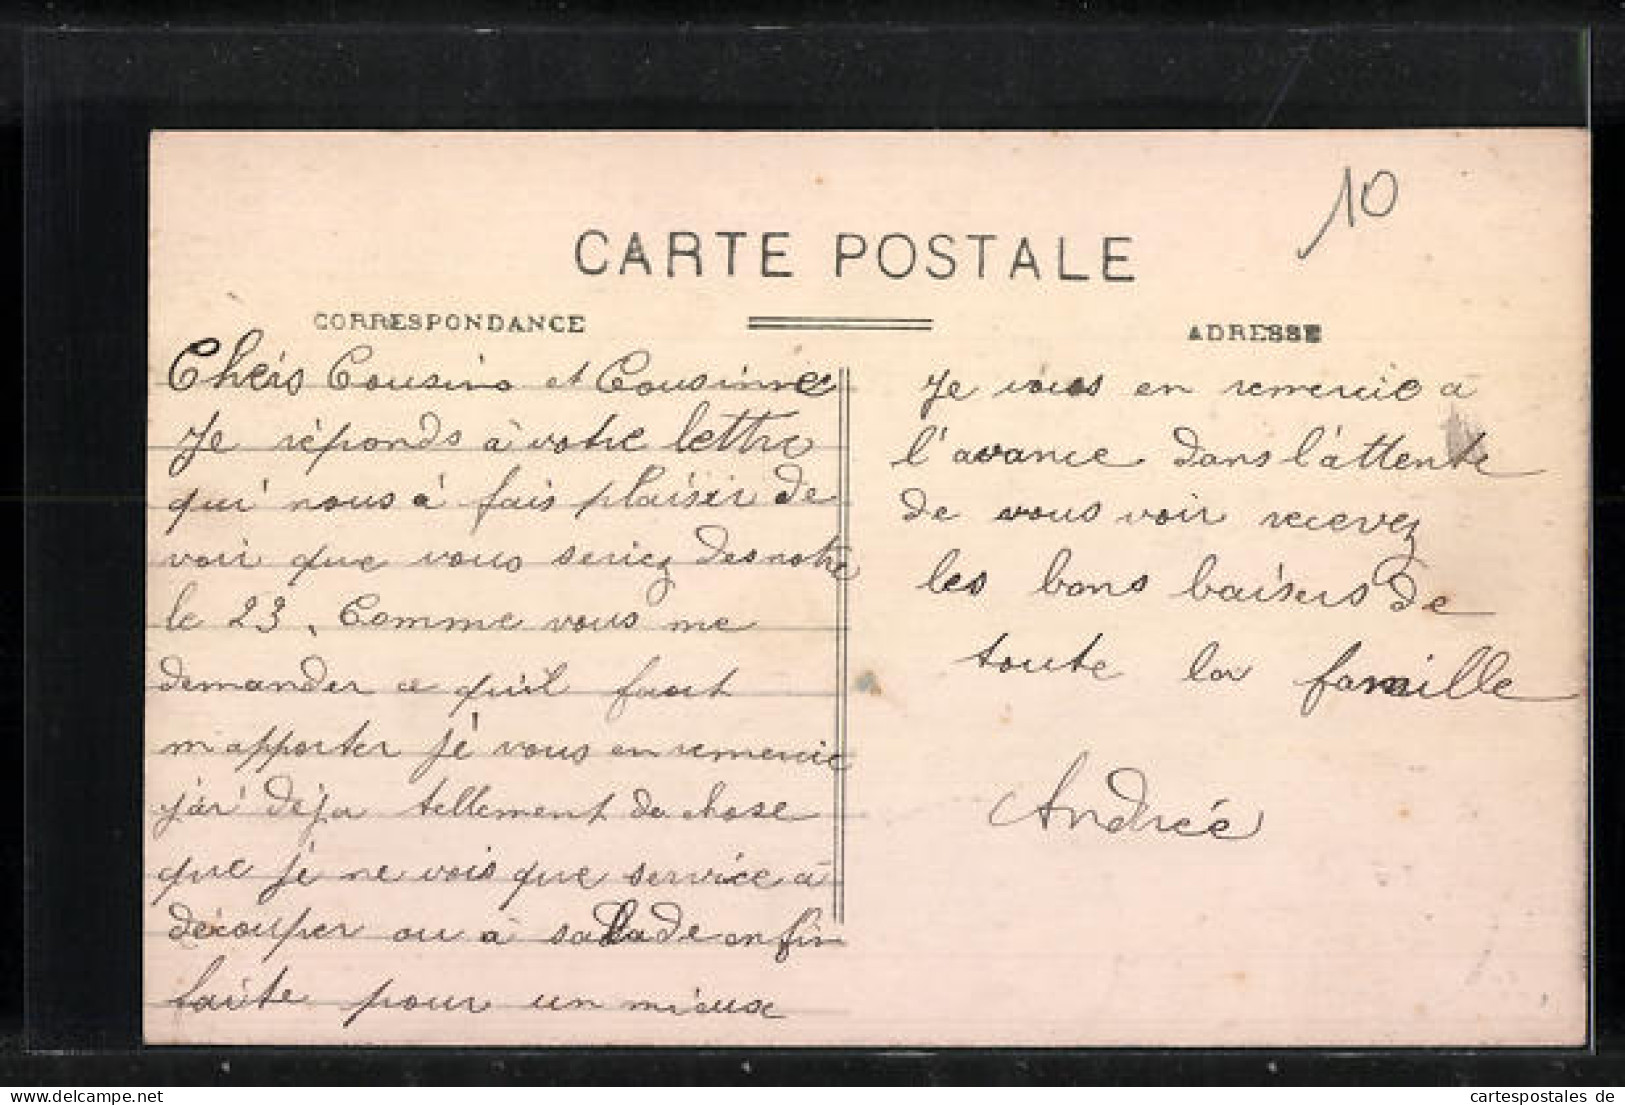 10
CARTE POSTALE
CORRESPONDANCE
ADRESSE
Chers Cousins et Cousinnes
Je réponds à votre lettre
qui nous à fais plaisir de
voir que vous seriez des notre
le 23. Comme vous me
demander ce qu'il faut
m'apporter je vous en remercie
j'ai déja tellement de chose
que je ne vois que service à
découper ou à salade enfin
faite pour un mieux
Je vous en remercie a
l'avance dans l'attente
de vous voir recevez
les bons baisers de
toute la famille
Andrée
cartespostales de